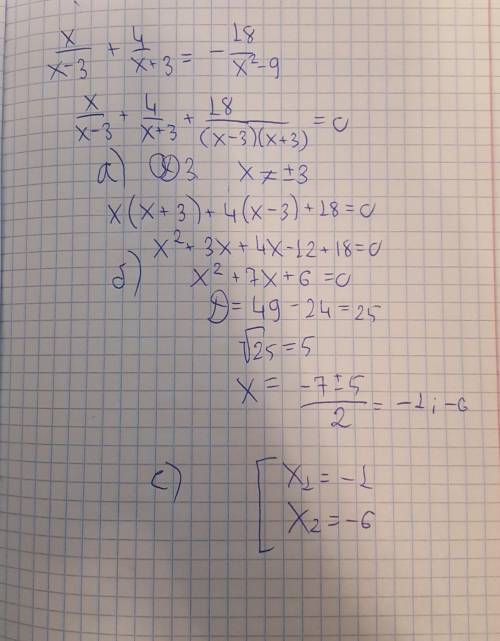 x/(x-3) + 4/(x+3) = - 18/(x²-9)
x/(x-3) + 4/(x+3) + 18/((x-3)(x+3)) = 0
а) ОДЗ x ≠ ±3
x(x+3)+4(x-3)+18=0
x²+3x+4x-12+18=0
б) x²+7x+6=0
D=49-24=25
√25=5
x= (-7±5)/2 = -1; -6
с) [ x₁=-1
x₂=-6